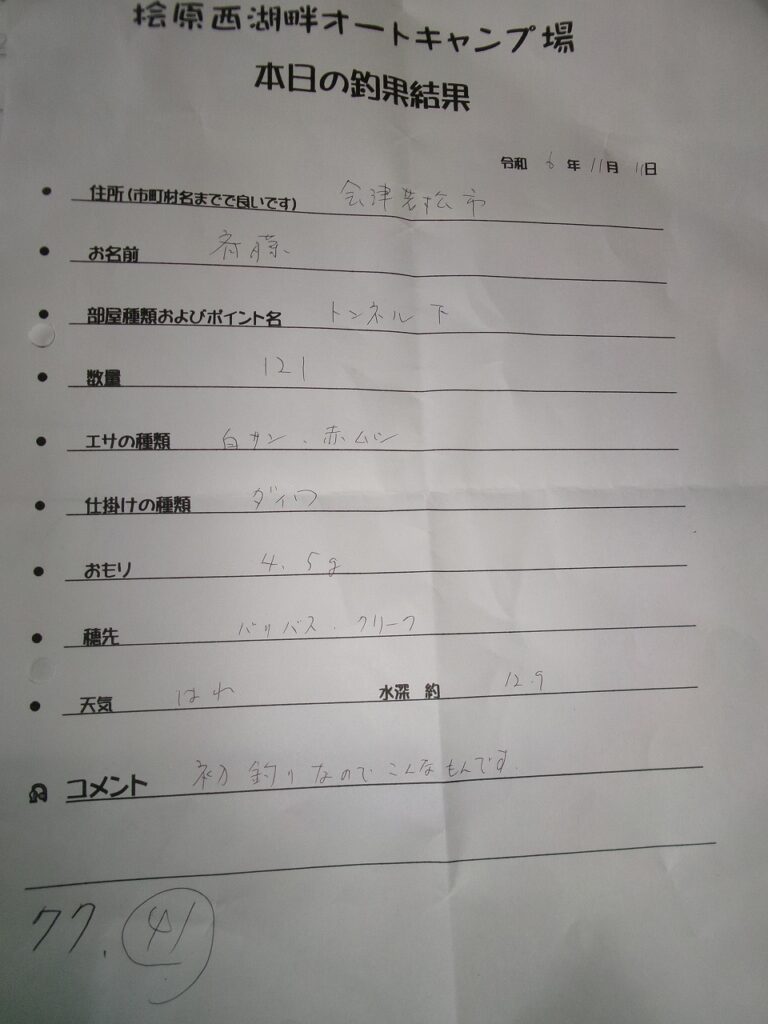 桧原西湖畔オートキャンプ場
本日の釣果結果
令和 6 年 11月 11日
● 住所(市町村名までで良いです) 会津若松市
● お名前 斉藤
● 部屋種類およびポイント名 トンネル下
● 数量 121
● エサの種類 白サシ、赤ムシ
● 仕掛けの種類 ダイワ
● おもり 4.5g
● 穂先 バリバス.クリーク
● 天気 はれ 水深 約 12.9
コメント 初釣りなのでこんなもんです.
77. 41